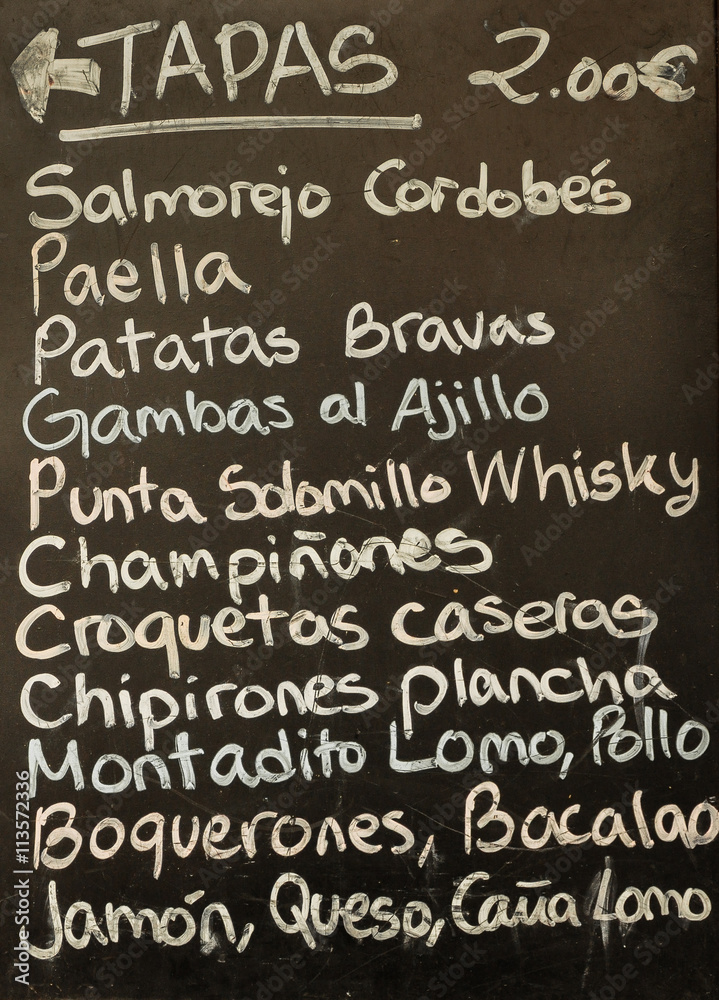 TAPAS 2.00€
Salmorejo Cordobés
Paella
Patatas Bravas
Gambas al Ajillo
Punta Solomillo Whisky
Champiñones
Croquetas caseras
Chipirones plancha
Montadito Lomo, Pollo
Boquerones, Bacalao
Jamón, Queso, Caña Lomo
Adobe Stock | #113572336